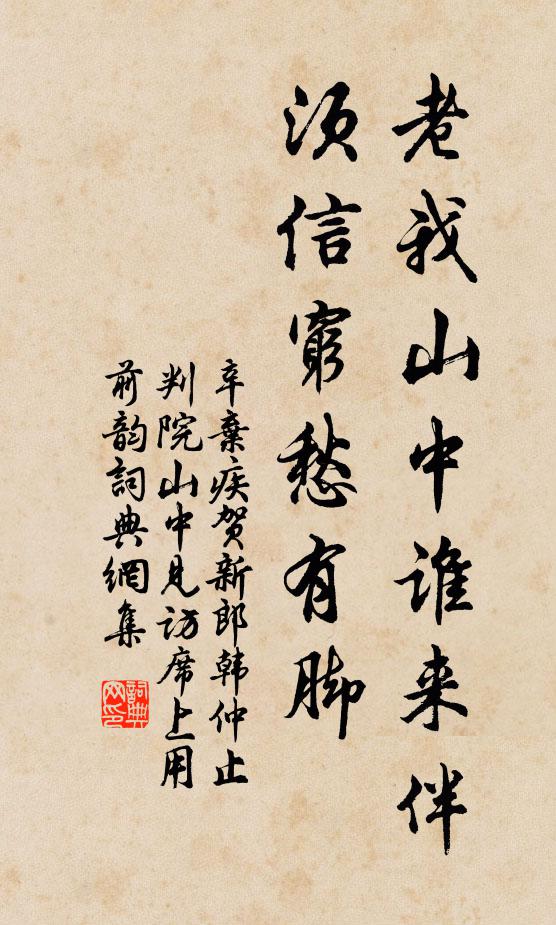 老我山中谁来伴
须信窮愁有脚
辛棄疾贺新郎韩仲止
判院山中见访席上用
前韵詞典網集
詞典网印